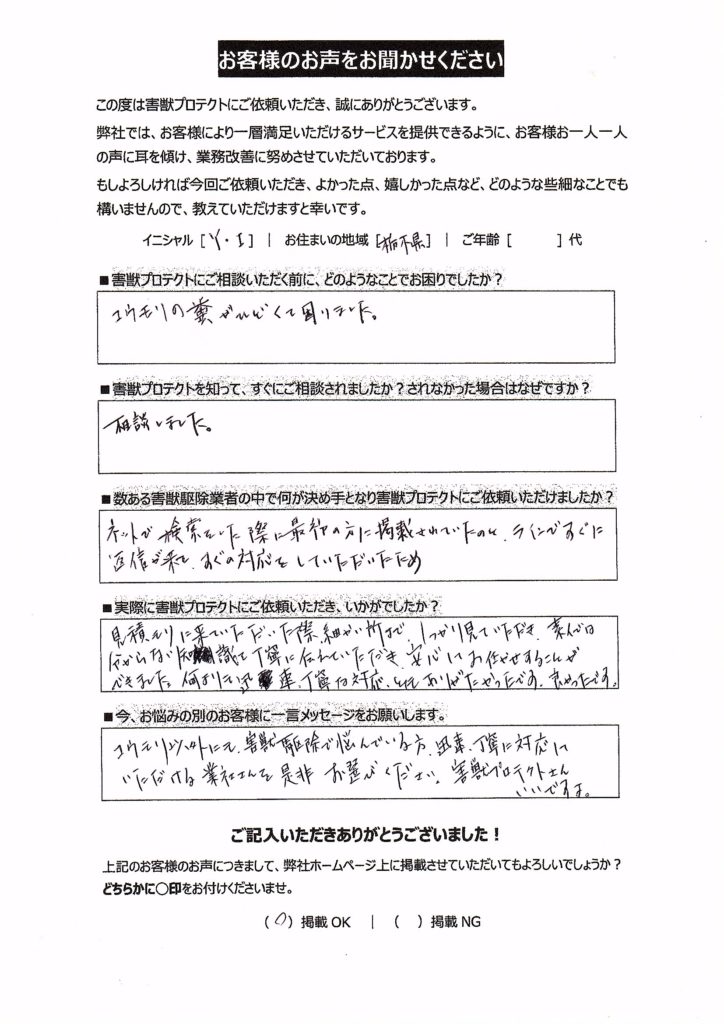 お客様のお声をお聞かせください
この度は害獣プロテクトにご依頼いただき、誠にありがとうございます。
弊社では、お客様により一層満足いただけるサービスを提供できるように、お客様お一人一人
の声に耳を傾け、業務改善に努めさせていただいております。
もしよろしければ今回ご依頼いただき、よかった点、嬉しかった点など、どのような些細なことでも
構いませんので、教えていただけますと幸いです。
イニシャル [ Y・I ] | お住まいの地域 [栃木県] | ご年齢 [ ] 代
■害獣プロテクトにご相談いただく前に、どのようなことでお困りでしたか?
コウモリの糞がひどくて困りました。
■害獣プロテクトを知って、すぐにご相談されましたか?されなかった場合はなぜですか?
相談しました。
■数ある害獣駆除業者の中で何が決め手となり害獣プロテクトにご依頼いただけましたか?
ネットで検索をした際に最初の方に掲載されていたのと、ラインですぐに
返信が来て、すぐの対応をしていただいたため
■実際に害獣プロテクトにご依頼いただき、いかがでしたか?
見積もりに来ていただいた際、細かい所まで、しっかり見ていただき、素人では
分からない知識を丁寧に伝えていただき、安心してお任せすることが
できました。何より迅速、丁寧な対応、とてもありがたかったです。良かったです。
■今、お悩みの別のお客様に一言メッセージをお願いします。
コウモリ以外にも、害獣駆除で悩んでいる方、迅速、丁寧に対応して
いただける業社さんを是非お選びください。害獣プロテクトさん
いいですよ。
ご記入いただきありがとうございました!
上記のお客様のお声につきまして、弊社ホームページ上に掲載させていただいてもよろしいでしょうか?
どちらかに○印をお付けくださいませ。
(○) 掲載 OK | ( ) 掲載 NG